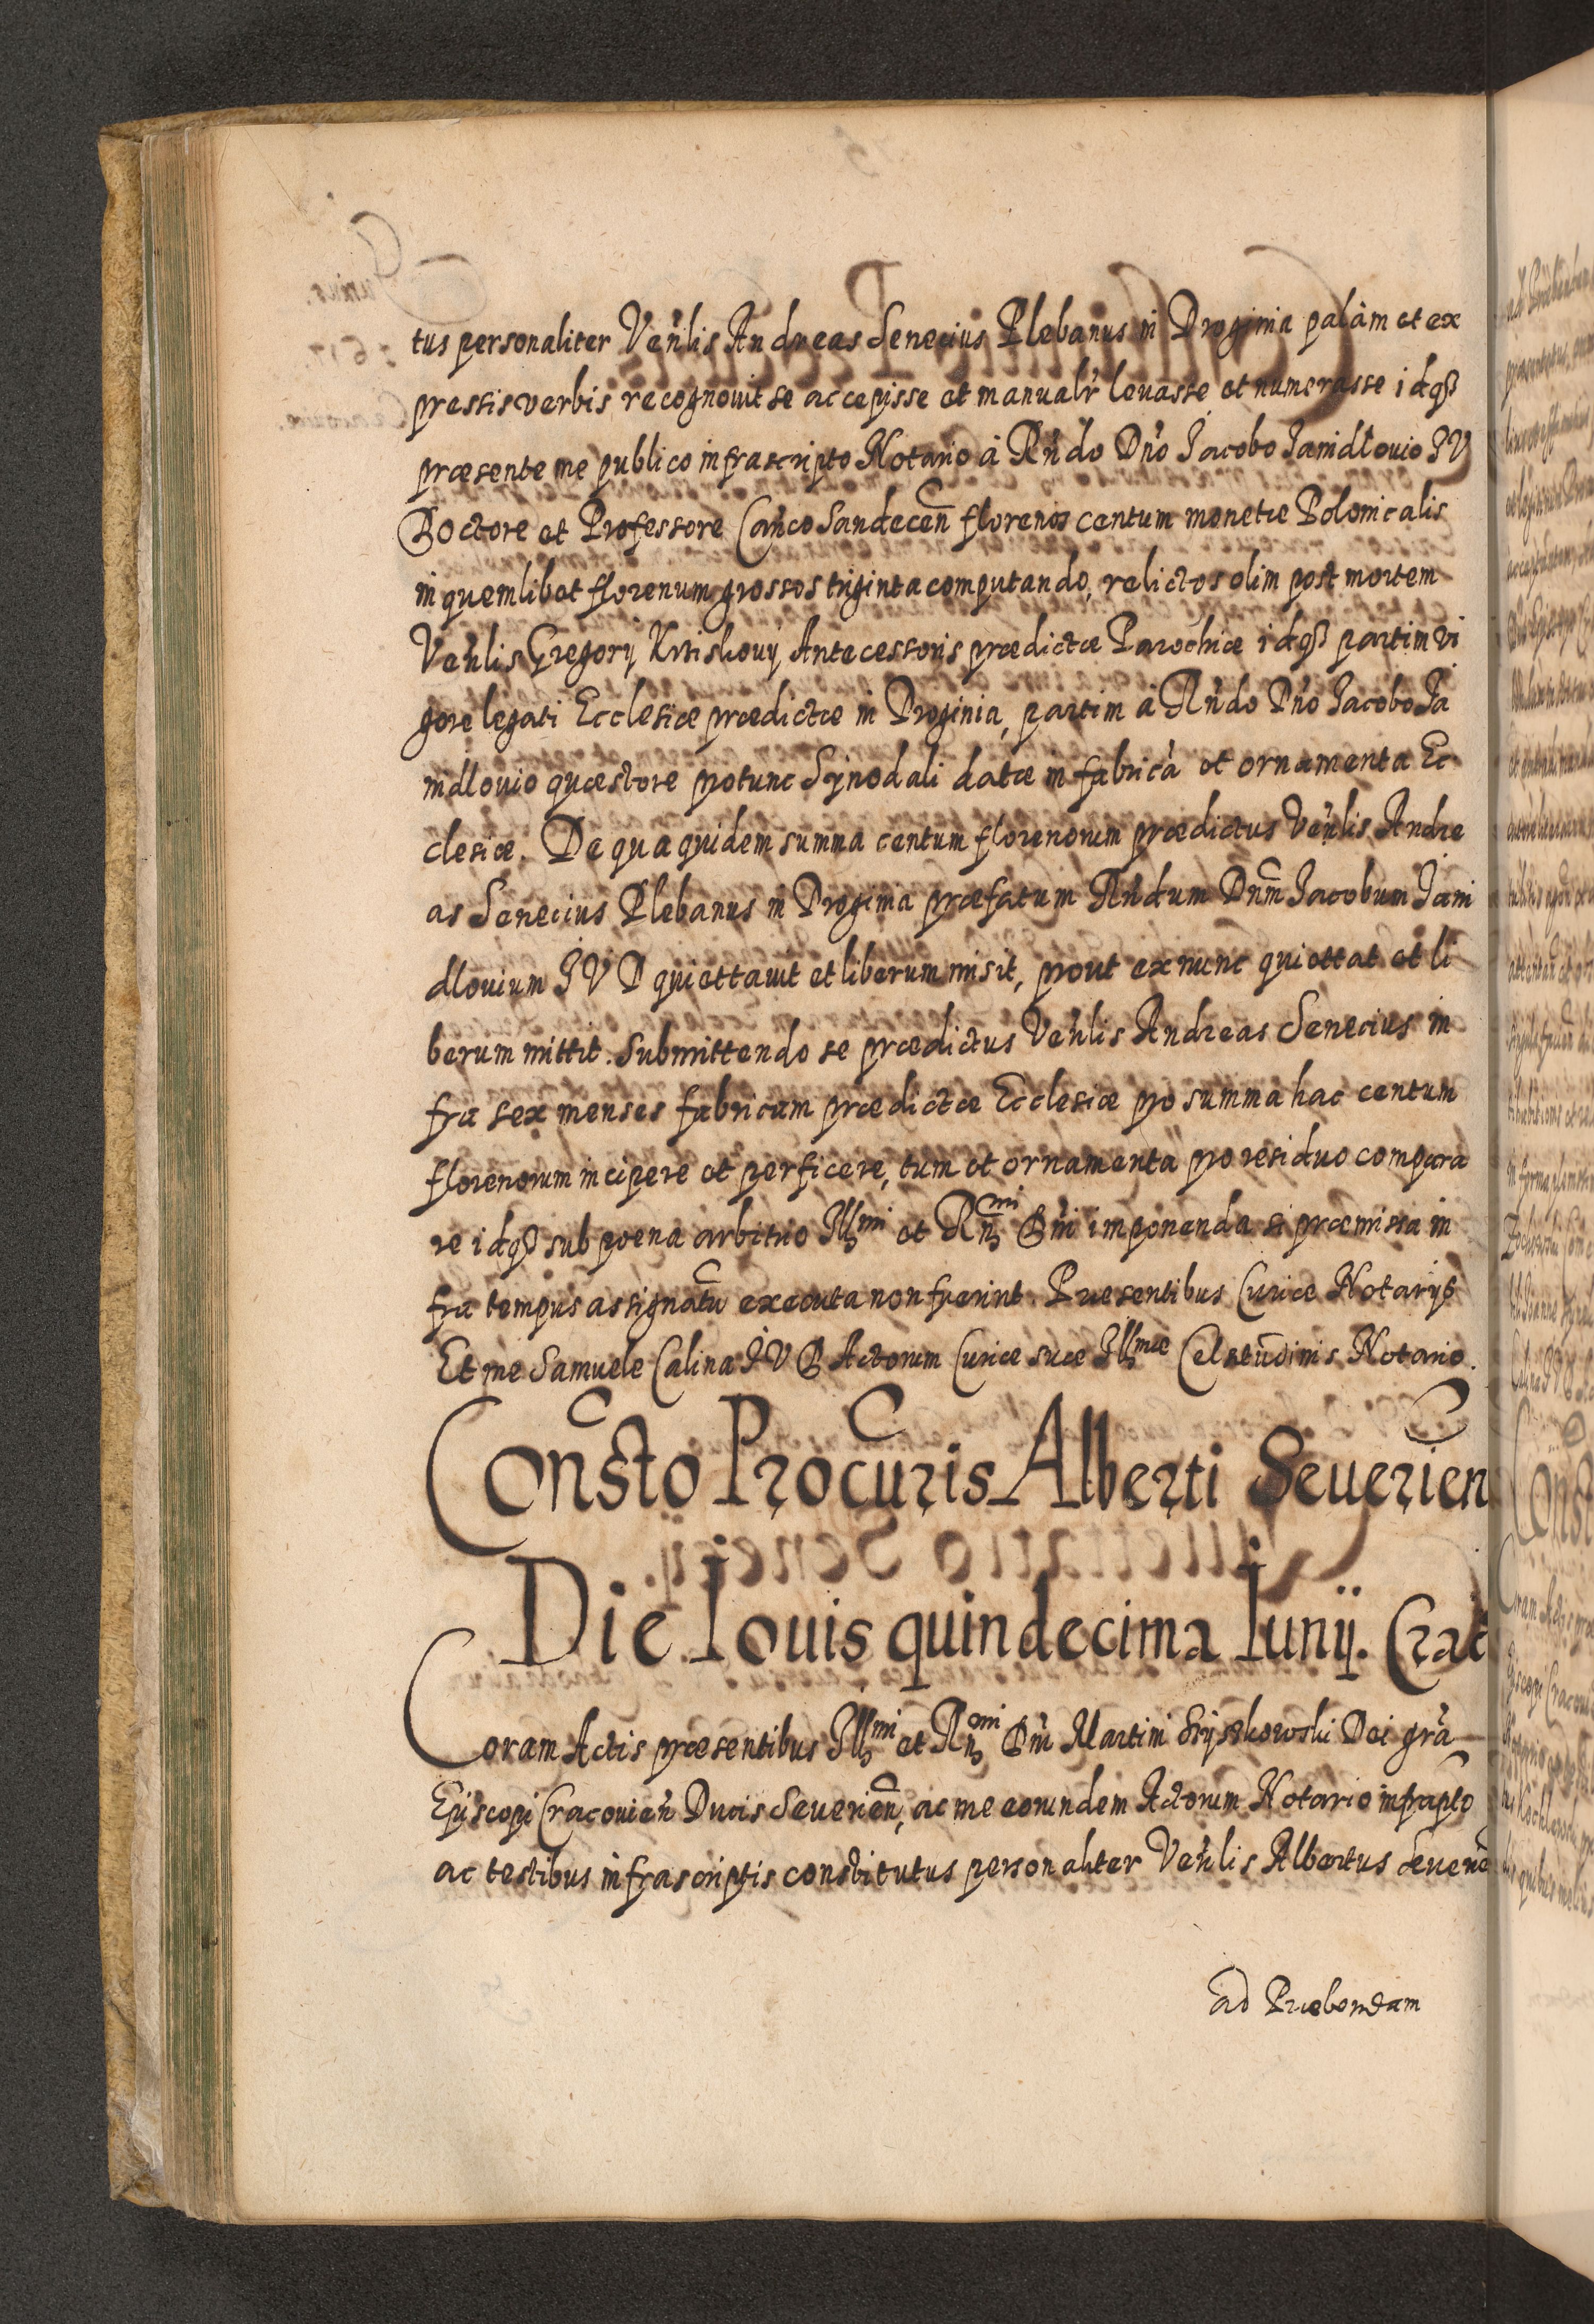 tus personaliter Veńlis Andreas Senecius Plebanus in Droginia palàm et ex
pressis verbis recognouit se accepisse et manualr leuasse et numerasse idqß
præsente me publico infrascripto Notario à Rńdo Dńo Jacobo Janidlouio JV
Doctore et Professore Cańco Sandecen̄ florenos centum monetæ Polonicalis
in quemlibet florenum grossos triginta computando, relictos olim post mortem
Veńlis Gregorij Krziskouij Antecessoris prædictæ Parochiæ idqß partim vi
gore legati Ecclesiæ prædictæ in Droginia, partim à Rńdo Dńo Jacobo Ja
nidlouio quæstore protunc Synodali datæ in fabricà et ornamenta Ec
clesiæ. De qua quidem summa centum florenorum prædictus Veńlis Andre
as Senecius Plebanus in Droginia præfatum Rńdum Dnm̄ Jacobum Jani
dlouium JVD quiettauit et liberum misit, prout ex nunc quiettat et li
berum mittit. Submittendo se prædictus Veńlis Andreas Senecius in
fra sex menses fabricam prædictæ Ecclesiæ pro summa hac centum
florenorum incipere et perficere, tum et ornamenta pro residuo compara
re idqß sub poena arbitrio Illmi et Rn̄mi Dńi imponenda si præmissa in
fra tempus assignatū executa non fuerint. Præsentibus Curiæ Notarijs
Et me Samuele Calina JVD Actorum Curiæ suæ Illmæ Celsitūdinis Notario.
Cons̄to Procu͠ris Alberti Seuerien̄
Die Iouis quindecima Iunij. Crac
Coram Actis præsentibus Illmi et Rn̄mi Dńi Martini Szyszkowski Dei grà
Episcopi Cracouień Ducis Seuerien̄, ac me eorundem Actorum Notario infrapto
ac testibus infrascriptis constitutus personaliter Veńlis Albertus
ad Præbendam